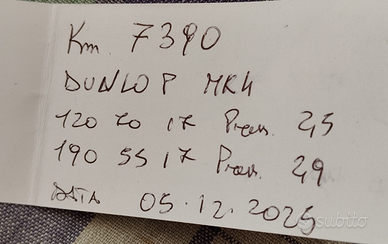 Km 7390
DUNLOP MK4
120 70 17 Press. 2,5
190 55 17 Press. 2,9
DATA 05.12.2025
subito